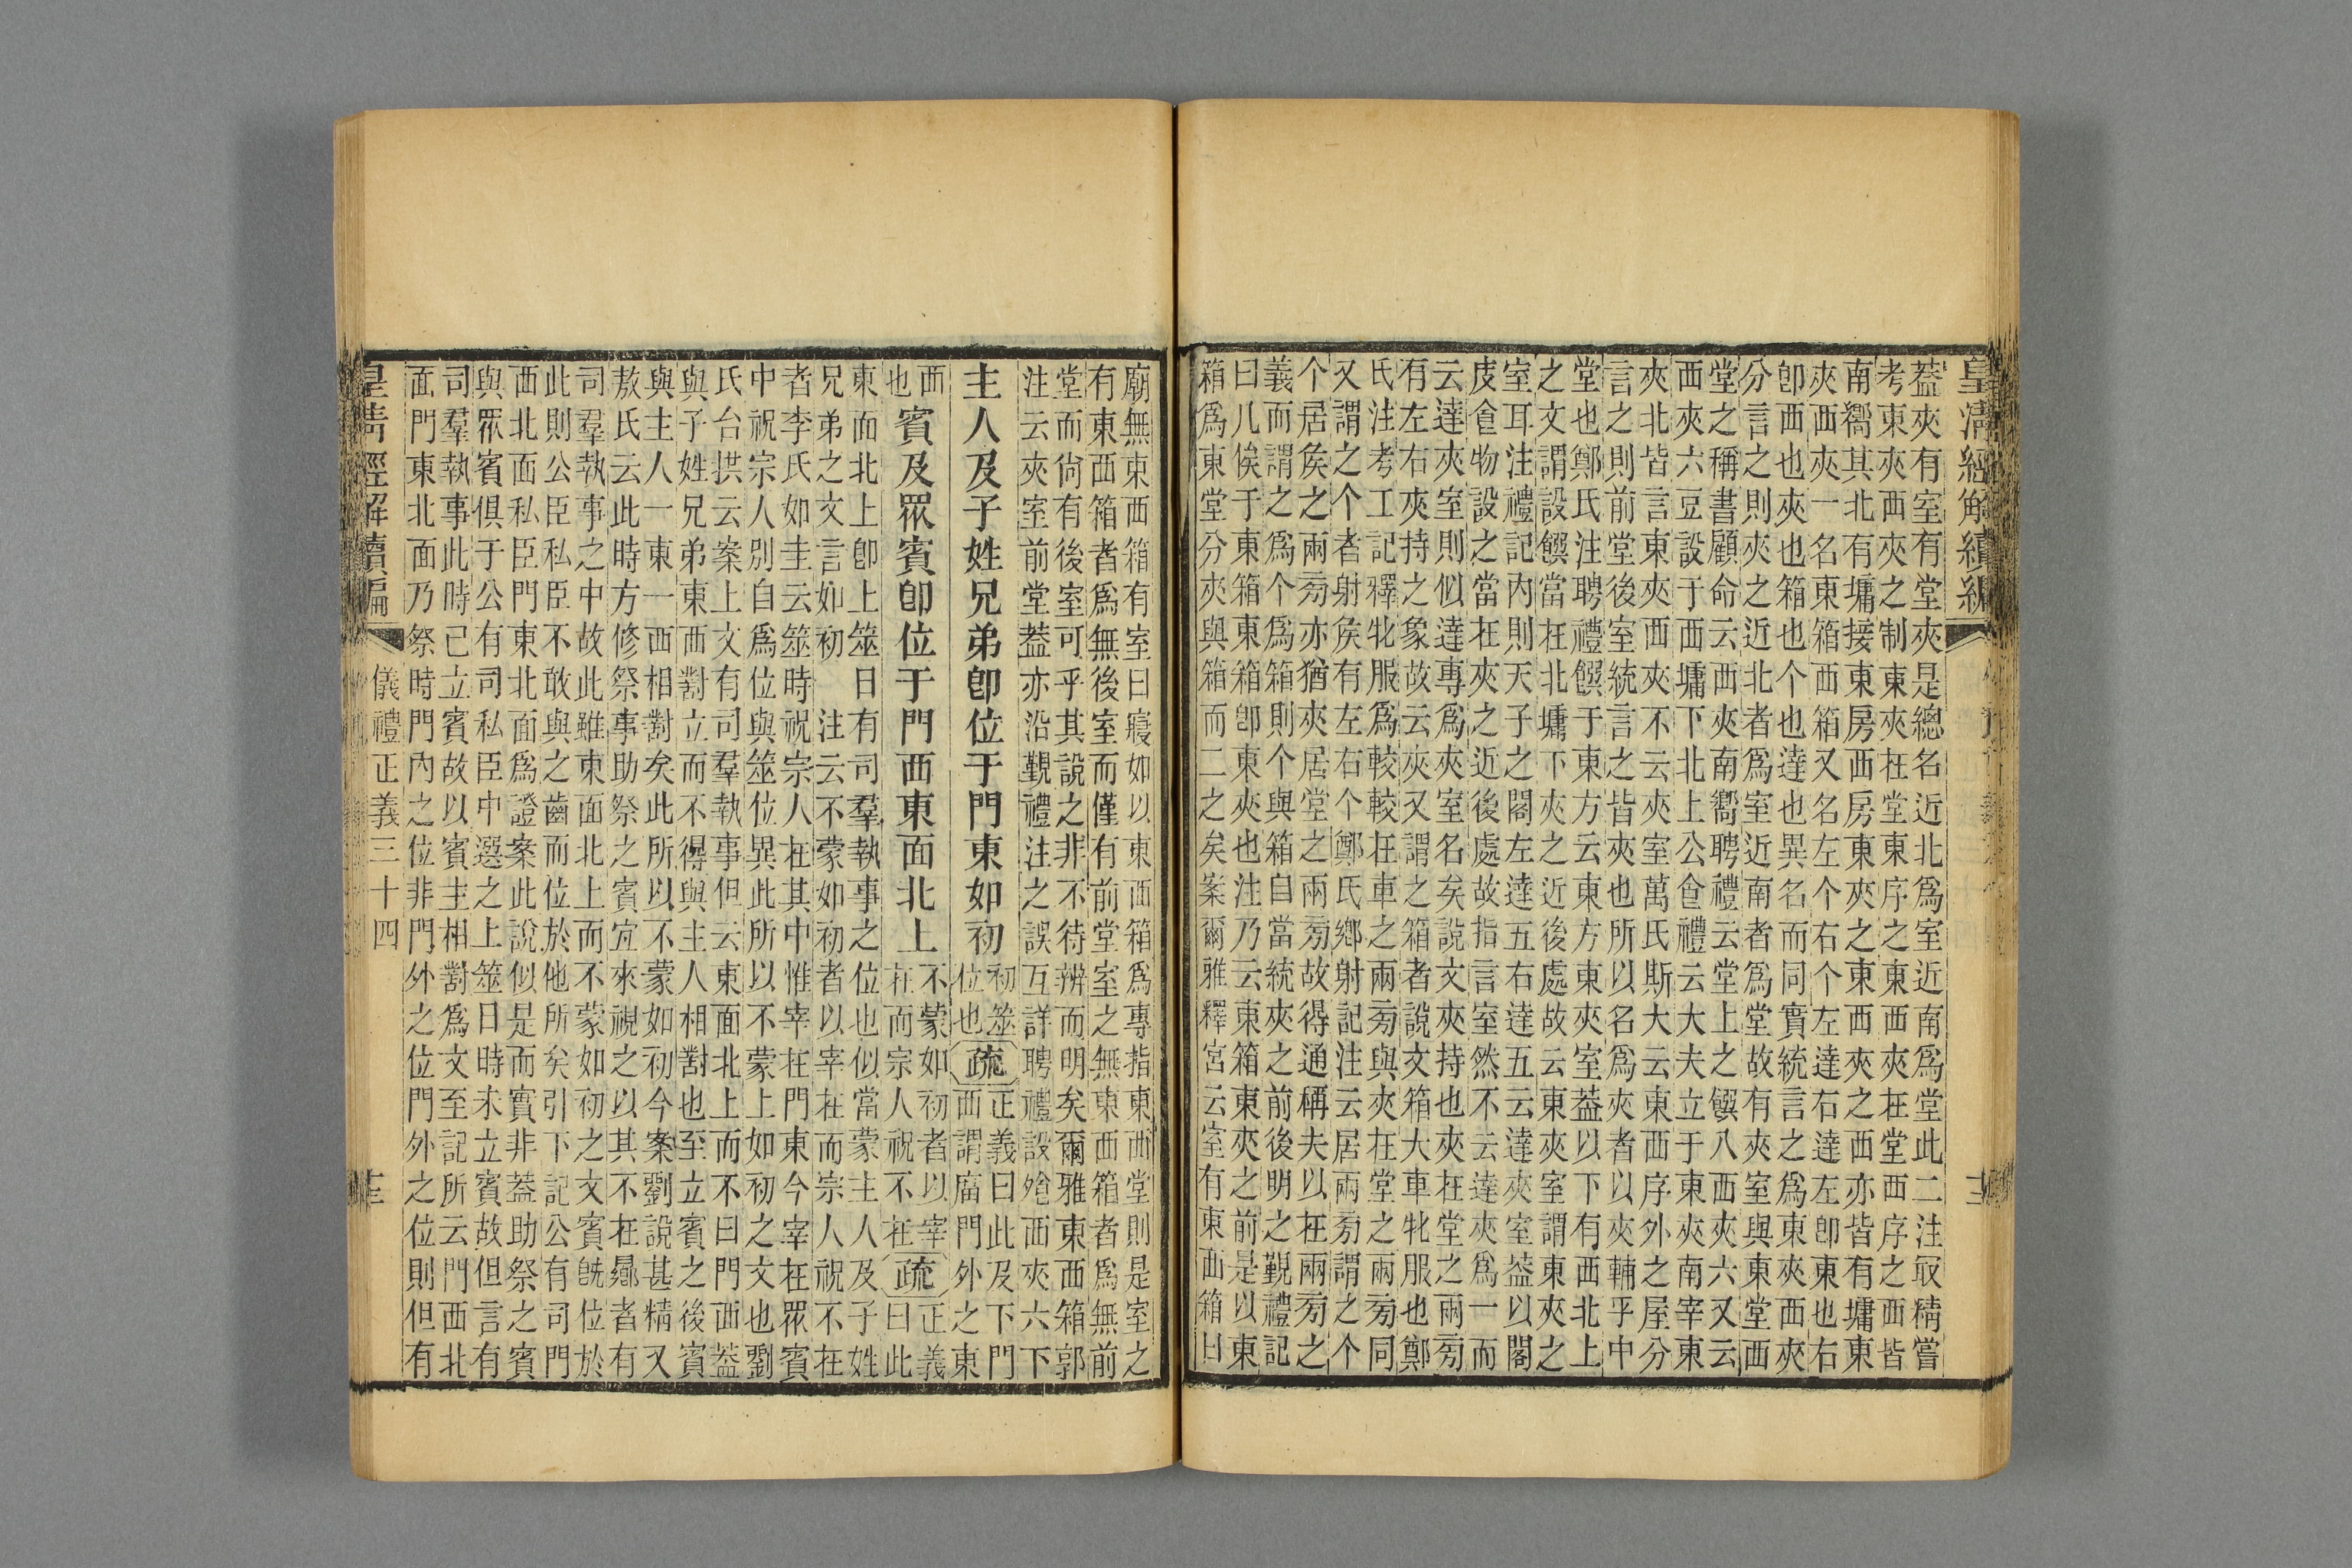 皇清經解續編
蓋夾有室有堂夾是總名近北爲室近南爲堂此二注㝡精嘗
考東夾西夾之制東夾在堂東序之東西夾在堂西序之西皆
南嚮其北有墉接東房西房東夾之東西夾之西亦皆有墉東
夾西夾一名東箱西箱又名左个右个左達右達左卽東也右
卽西也夾也箱也个也達也異名而同實統言之爲東夾西夾
分言之則夾之近北者爲室近南者爲堂故有夾室與東堂西
堂之稱書顧命云西夾南嚮聘禮云堂上之饌八西夾六又云
西夾六豆設于西墉下北上公食禮云大夫立于東夾南宰東
夾北皆言東夾西夾不云夾室萬氏斯大云東西序外之屋分
言之則前堂後室統言之皆夾也所以名爲夾者以夾輔乎中
堂也鄭氏注聘禮饌于東方云東方東夾室蓋以下有西北上
之文謂設饌當在北墉下夾之近後處故云東夾室謂東夾之
室耳注禮記內則天子之閣左達五右達五云達夾室蓋以閣
庋食物設之當在夾之近後處故指言室然不云達夾爲一而
云達夾室則似達專爲夾室名矣說文夾持也夾在堂之兩旁
有左右夾持之象故云夾又謂之箱者說文箱大車牝服也鄭
氏注考工記釋牝服爲較較在車之兩旁與夾在堂之兩旁同
又謂之个者射侯有左右个鄭氏鄉射記注云居兩旁謂之个
个居侯之兩旁亦猶夾居堂之兩旁故得通稱夫以在兩旁之
義而謂之爲个爲箱則个與箱自當統夾之前後明之覲禮記
曰几俟于東箱東箱卽東夾也注乃云東箱東夾之前是以東
箱爲東堂分夾與箱而二之矣案爾雅釋宮云室有東西箱曰
廟無東西箱有室曰寢如以東西箱爲專指東西堂則是室之
有東西箱者爲無後室而僅有前堂室之無東西箱者爲無前
堂而尙有後室可乎其說之非不待辨而明矣爾雅東西箱郭
注云夾室前堂蓋亦沿覲禮注之誤互詳聘禮設飧西夾六下
主人及子姓兄弟卽位于門東如初初筮位也疏正義曰此及下門西謂廟門外之東
西也賓及眾賓卽位于門西東面北上不蒙如初者以宰在而宗人祝不在疏正義曰此
東面北上卽上筮日有司羣執事之位也似當蒙主人及子姓
兄弟之文言如初注云不蒙如初者以宰在而宗人祝不在
者李氏如圭云筮時祝宗人在其中惟宰在門東今宰在眾賓
中祝宗人別自爲位與筮位異此所以不蒙上如初之文也劉
氏台拱云案上文有司羣執事但云東面北上而不曰門西蓋
與子姓兄弟東西對立而不得與主人相對也至立賓之後賓
與主人一東一西相對矣此所以不蒙如初今案劉說甚精又
敖氏云此時方修祭事助祭之賓宜來視之以其不在鼏者有
司羣執事之中故此雖東面北上而不蒙如初之文賓旣位於
此則公臣私臣不敢與之齒而位於他所矣引下記公有司門
西北面私臣門東北面爲證案此說似是而實非蓋助祭之賓
與眾賓俱于公有司私臣中選之上筮日時未立賓故但言有
司羣執事此時已立賓故以賓主相對爲文至記所云門西北
面門東北面乃祭時門內之位非門外之位門外之位則但有
皇清經解續編
儀禮正義三十四